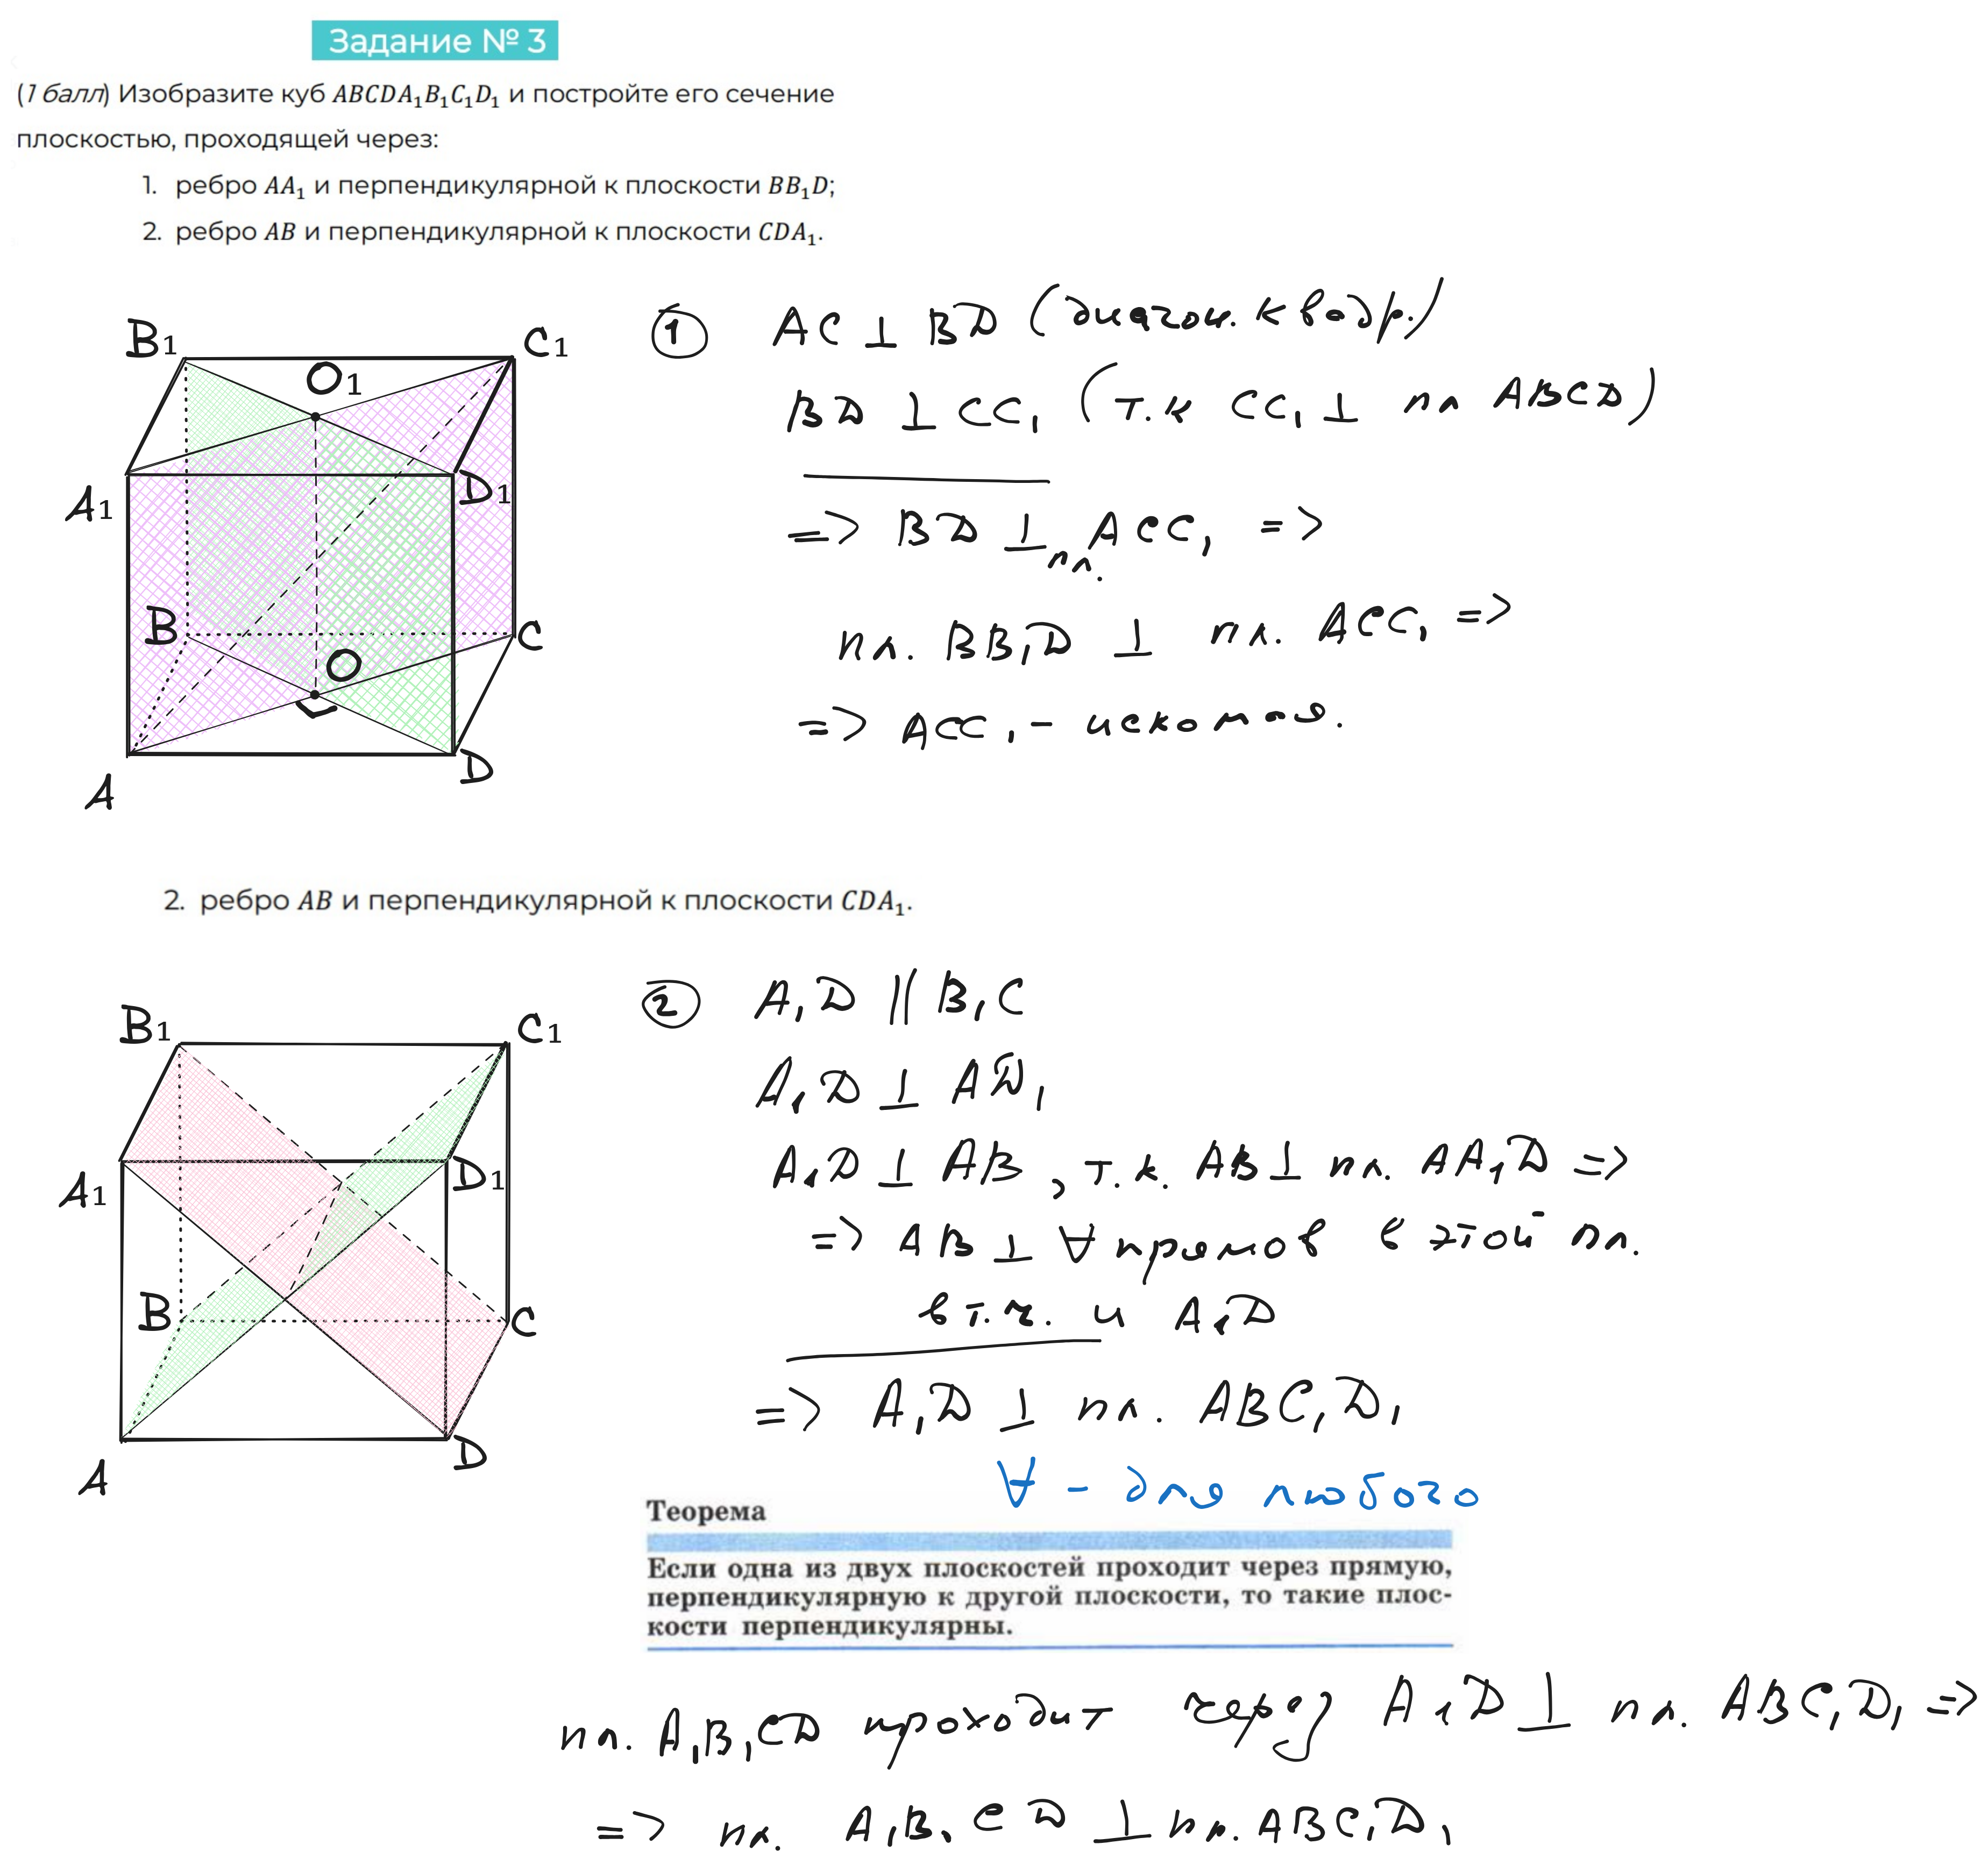 Задание № 3
(1 балл) Изобразите куб ABCDA₁B₁C₁D₁ и постройте его сечение
плоскостью, проходящей через:
1. ребро AA₁ и перпендикулярной к плоскости BB₁D;
2. ребро AB и перпендикулярной к плоскости CDA₁.
B₁ C₁
O₁
A₁ D₁
B C
O
A D
① AC ⊥ BD (диагон. квадр.)
BD ⊥ CC₁ (т.к CC₁ ⊥ пл ABCD)
=> BD ⊥ пл. ACC₁ =>
пл. BB₁D ⊥ пл. ACC₁ =>
=> ACC₁ - искомая.
2. ребро AB и перпендикулярной к плоскости CDA₁.
B₁ C₁
A₁ D₁
B C
A D
② A₁D || B₁C
A₁D ⊥ AD₁
A₁D ⊥ AB, т.к. AB ⊥ пл. AA₁D =>
=> AB ⊥ ∀ прямой в этой пл.
в т.ч. и A₁D
=> A₁D ⊥ пл. ABC₁D₁
∀ - для любого
Теорема
Если одна из двух плоскостей проходит через прямую,
перпендикулярную к другой плоскости, то такие плос-
кости перпендикулярны.
пл. A₁B₁CD проходит через A₁D ⊥ пл. ABC₁D₁ =>
=> пл. A₁B₁CD ⊥ пл. ABC₁D₁